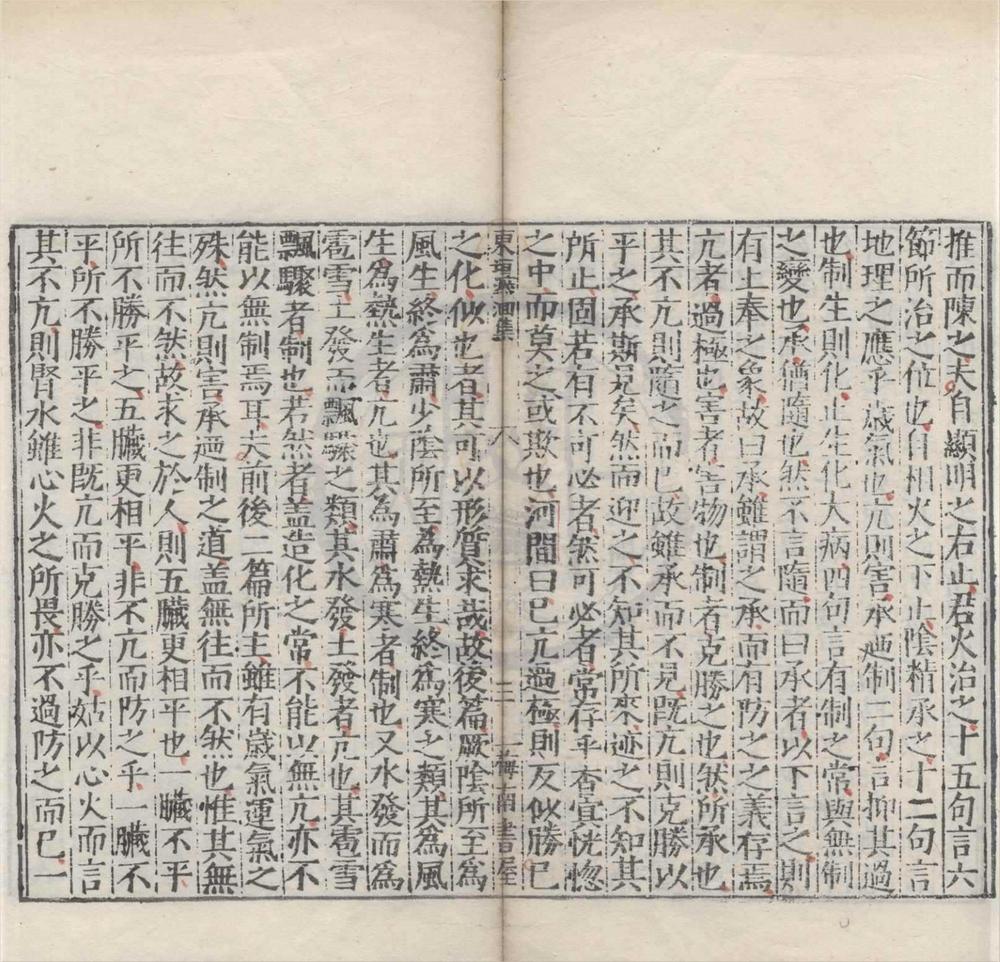 推而陳之夫自顯明之右止君火治之十五句言六
節所治之位也自相火之下止陰精承之十二句言
地理之應乎歲氣也亢則害承廼制二句言抑其過
也制生則化止生化大病四句言有制之常與無制
之變也承猶隨也然不言隨而曰承者以下言之則
有上奉之象故曰承雖謂之承而有防之之義存焉
亢者過極也害者害物也制者克勝之也然所承也
其不亢則隨之而已故雖承而不見既亢則克勝以
平之承斯見矣然而迎之不知其所來迹之不知其
所止固若有不可必者然可必者常存乎杳冥恍惚
之中而莫之或欺也河間曰已亢過極則反似勝已
東垣溯洄集 八 三 梅南書屋
之化似也者其可以形質求哉故後篇厥陰所至為
風生終為肅少陰所至為熱生終為寒之類其為風
生為熱生者亢也其為肅為寒者制也又水發而為
雹雪土發而飄驟之類其水發土發者亢也其雹雪
飄驟者制也若然者蓋造化之常不能以無亢亦不
能以無制焉耳夫前後二篇所主雖有歲氣運氣之
殊然亢則害承廼制之道蓋無往而不然也惟其無
往而不然故求之於人則五臟更相平也一臟不平
所不勝平之五臟更相平非不亢而防之乎一臟不
平所不勝平之非既亢而克勝之乎姑以心火而言
其不亢則腎水雖心火之所畏亦不過防之而已一